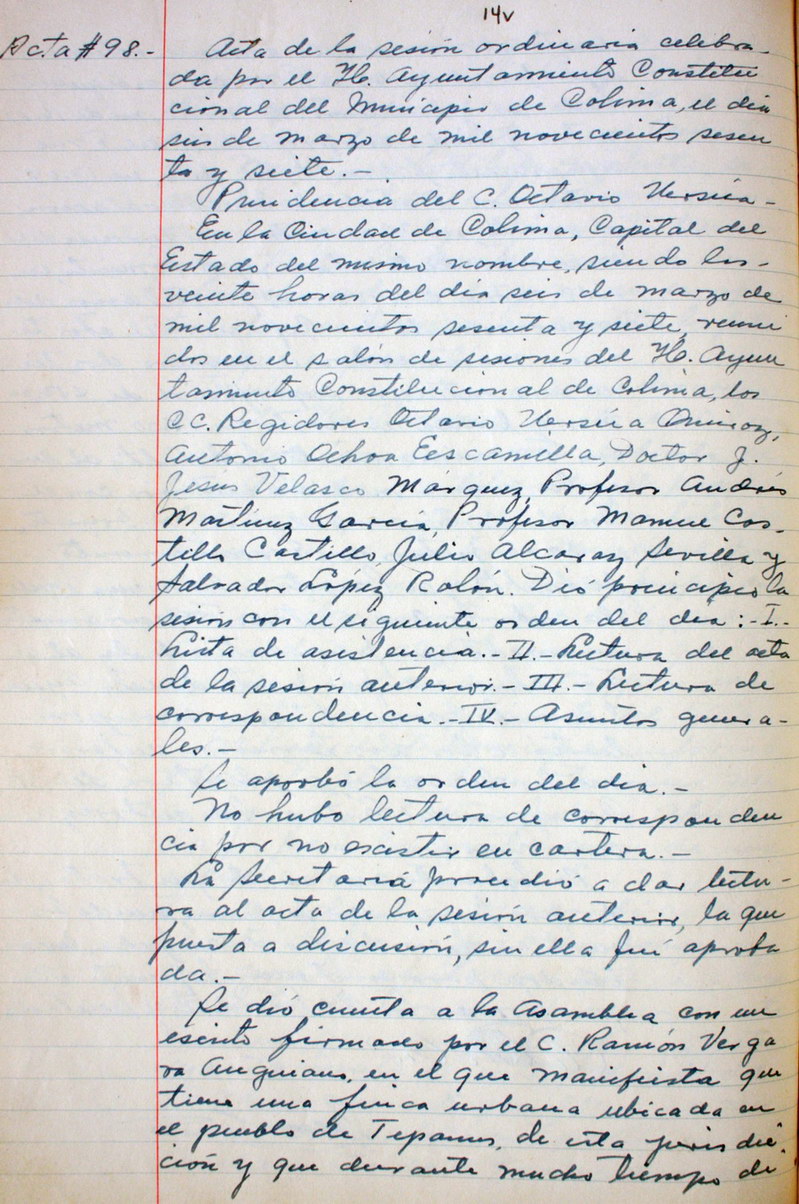 14v
Acta #98.- Acta de la sesión ordinaria celebra-
da por el H. Ayuntamiento Constitu
cional del Municipio de Colima, el día
seis de marzo de mil novecientos sesen
ta y siete.-
Presidencia del C. Octavio Ursúa-
En la Ciudad de Colima, Capital del
Estado del mismo nombre, siendo las-
veinte horas del día seis de marzo de
mil novecientos sesenta y siete, reuni
dos en el salón de sesiones del H. Ayun
tamiento Constitucional de Colima, los
CC. Regidores Octavio Ursúa Quiroz,
Antonio Ochoa Eescamilla, Doctor J.
Jesús Velasco Márquez, Profesor Andrés
Martínez García, Profesor Manuel Cas-
tillo Castillo, Julio Alcaraz Sevilla y
Salvador López Rolón. Dió principio la
sesión con el siguiente orden del día :-I.-
Lista de asistencia.-II.-Lectura del acta
de la sesión anterior.-III.-Lectura de
correspondencia.-IV.-Asuntos genera-
les.-
Se aprobó la orden del día.-
No hubo lectura de corresponden
cia por no existir en cartera.-
La Secretaría procedió a dar lectu-
ra al acta de la sesión anterior, la que
puesta a discusión, sin ella fué aproba
da.-
Se dió cuenta a la Asamblea con un
escrito firmado por el C. Ramón Verga
ra Anguiano, en el que manifiesta que
tiene una finca urbana ubicada en
el pueblo de Tepames, de esta jurisdic-
ción y que durante mucho tiempo di